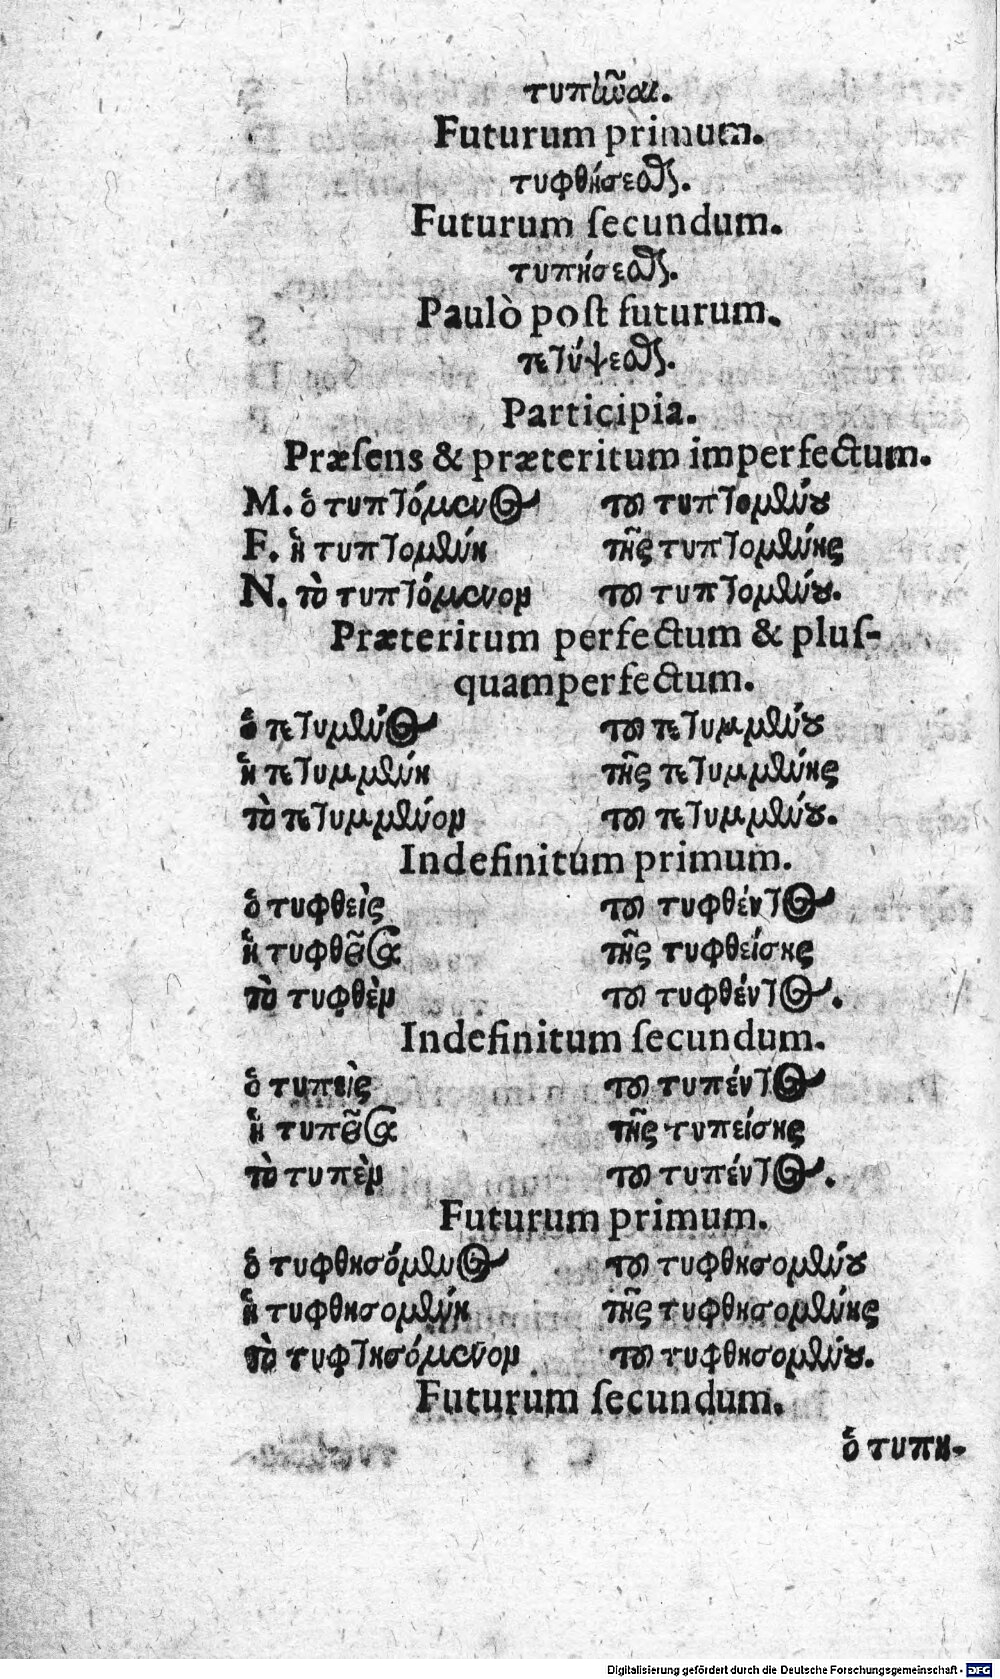 τυπῆναι.
Futurum primum.
τυφθήσεσθαι.
Futurum ſecundum.
τυπήσεσθαι.
Paulò poſt futurum.
τετύψεσθαι.
Participia.
Præſens & præteritum imperfectum.
M. ὁ τυπτόμενος του τυπτομένου
F. ἡ τυπτομένη τῆς τυπτομένης
N. τὸ τυπτόμενον του τυπτομένου.
Præteritum perfectum & pluſ-
quamperfectum.
ὁ πετυμένος του πετυμμένου
ἡ πετυμμένη τῆς πετυμμένης
τὸ πετυμμένον του πετυμμένου.
Indefinitum primum.
ὁ τυφθεὶς του τυφθέντος
ἡ τυφθεῖσα τῆς τυφθείσης
τὸ τυφθὲν του τυφθέντος.
Indefinitum ſecundum.
ὁ τυπεὶς του τυπέντος
ἡ τυπεῖσα τῆς τυπείσης
τὸ τυπὲν του τυπέντος.
Futurum primum.
ὁ τυφθησόμενος του τυφθησομένου
ἡ τυφθησομένη τῆς τυφθησομένης
τὸ τυφτησόμενον του τυφθησομένου.
Futurum ſecundum.
ὁ τυπη-
Digitalisierung gefördert durch die Deutsche Forschungsgemeinschaft - DFG